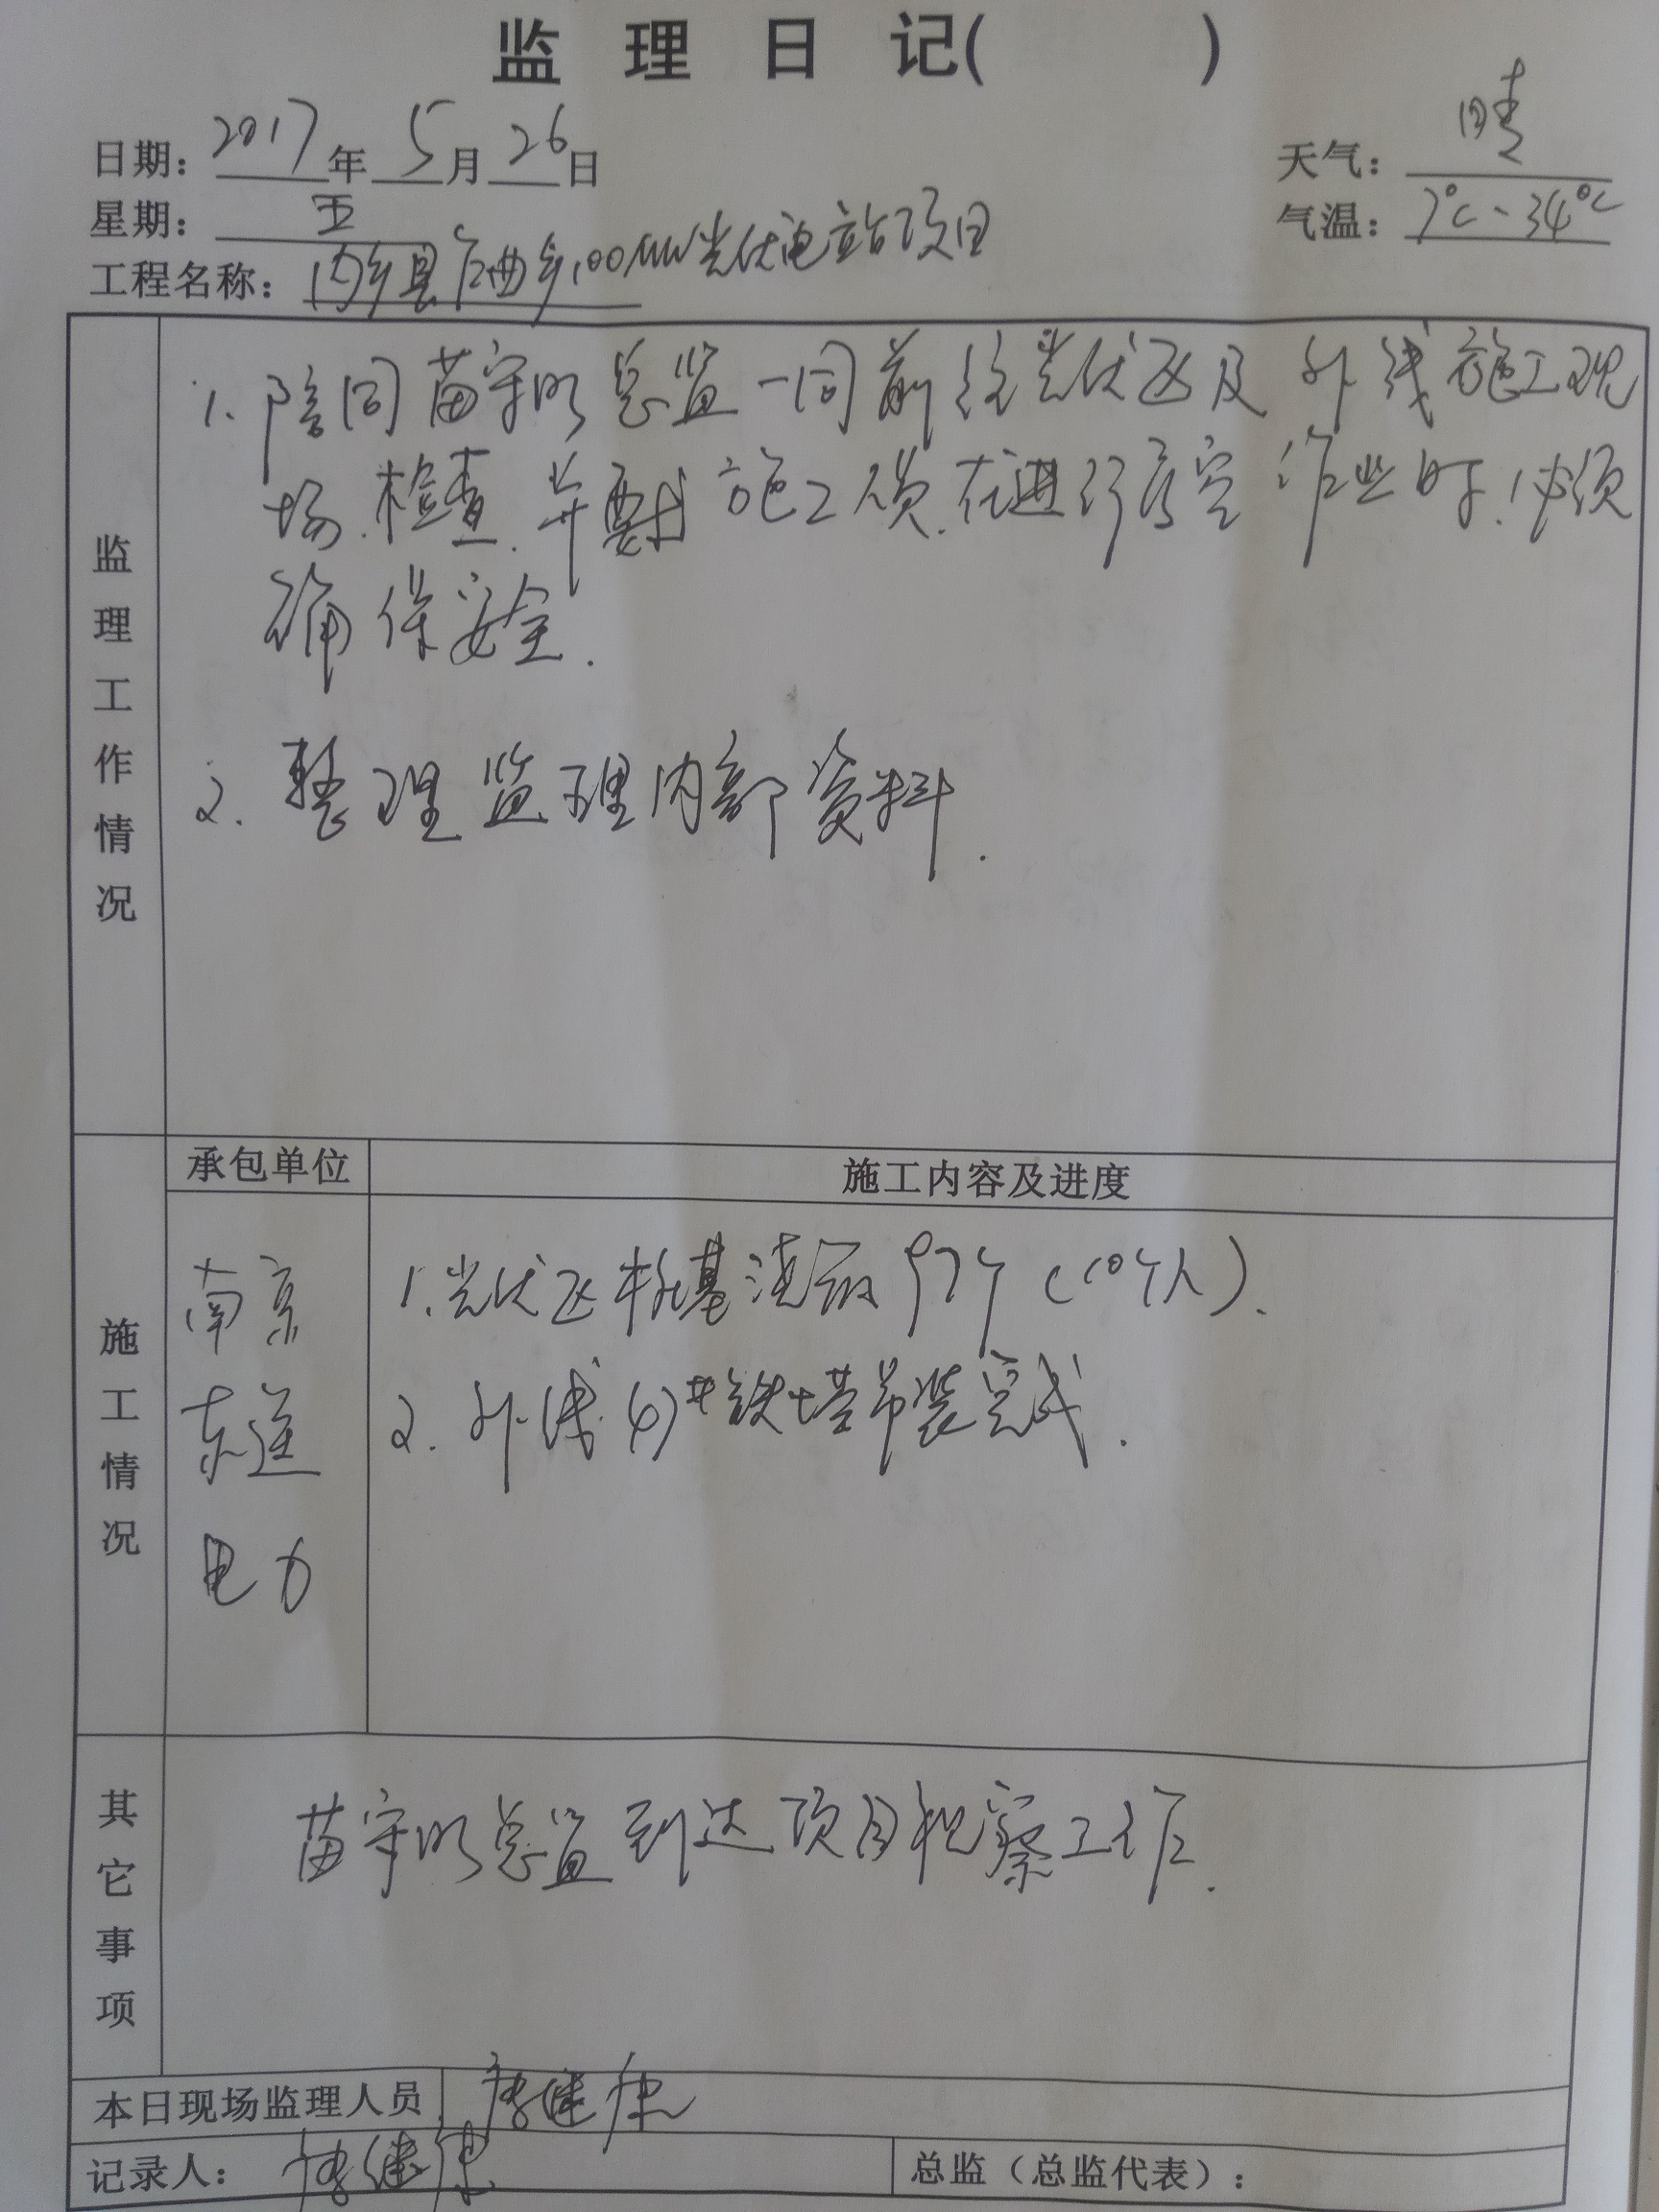 监理日记( )
日期：2017年5月26日
天气：晴
星期：五
气温：7℃~34℃
工程名称：内乡县 100MW光伏电站项目
监理工作情况
1.陪同苗守明总监一同前往光伏区及外线施工现
场.检查.并要求施工人员.在进行高空作业时.必须
确保安全.
2.整理监理内部资料.
施工情况
承包单位
施工内容及进度
南京
东送
电力
1.光伏区桩基浇筑97个(10个人).
2.外线 #铁塔吊装完成.
其它事项
苗守明总监到达项目视察工作.
本日现场监理人员
记录人：
总监（总监代表）：